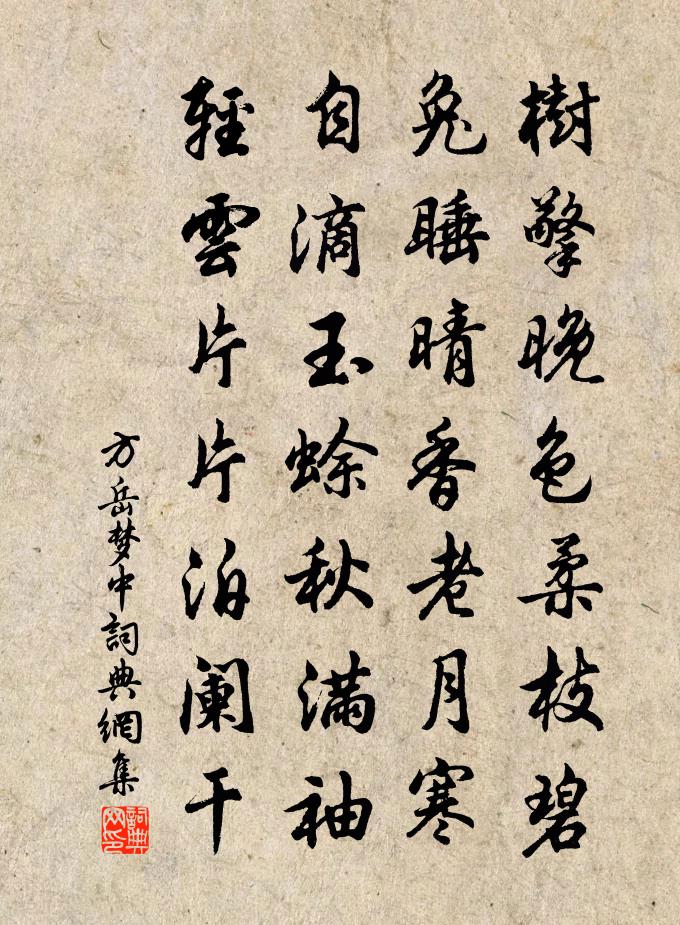 樹擎晚色柔枝碧
兔睡晴香老月寒
自滴玉蜍秋滿袖
輕雲片片泊闌干
方岳梦中詞典網集
詞典网印